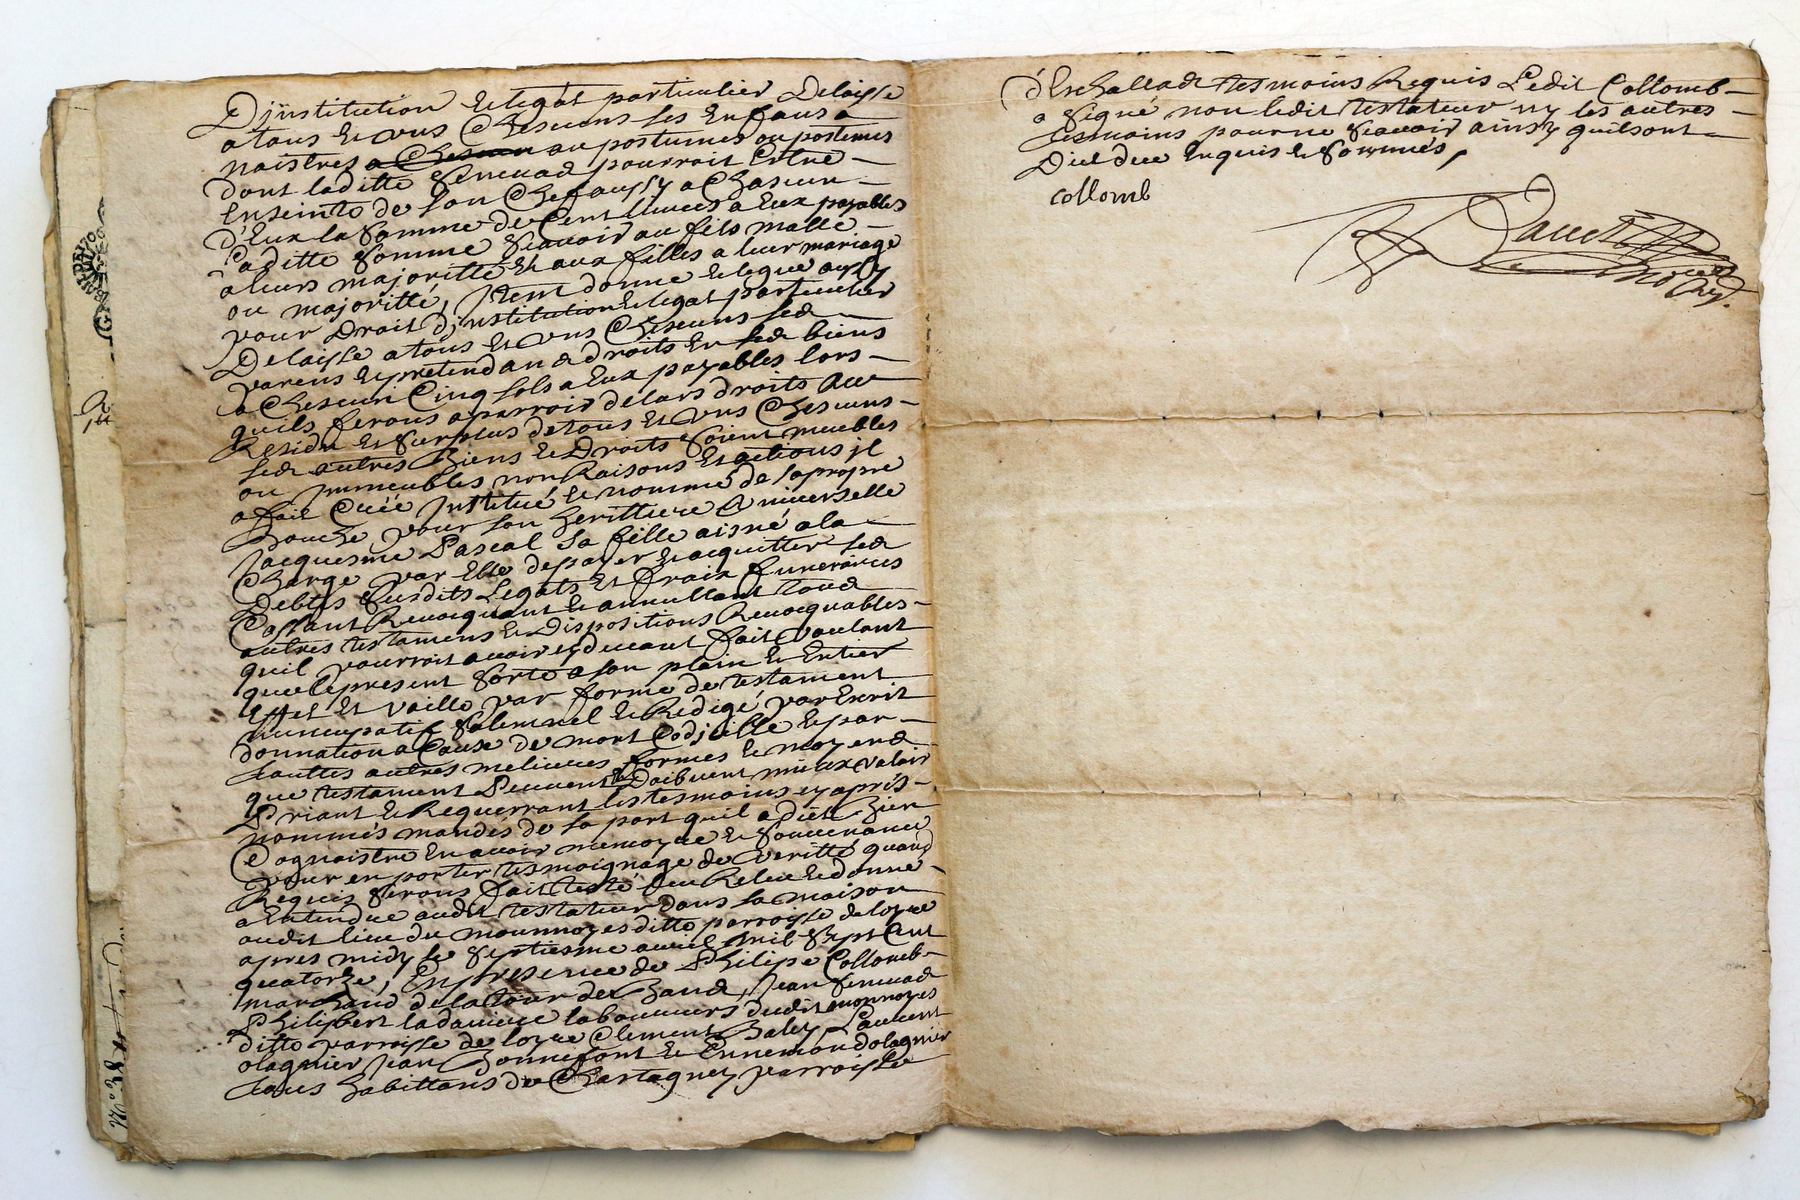 D'jnstitution et legat particulier Delaisse
a tous et uns Chescuns ses Enfans a
naistres a Chescun ou postumes ou postemes
dont laditte femme pourroit Estre
Enseinte de son Chef aussy a Chascun
d'Eux la somme de Cent livres a Eux payables
laditte somme sçauoir au fils malle
a leurs majoritté Et aux filles a leur mariage
ou majoritté, jtem donne et legue aussy
pour Droit d'jnstitution et legat particulier
Delaisse a tous Et uns Chescuns ses
parens et pretendans droits En ses biens
a Chescun Cinq sols a Eux payables lors
quils feront apparroir de lars droits Au
Residu Et surplus de tous Et uns Chescuns
ses autres Biens et Droits soient meubles
ou jmmeubles noms Raisons Et actions jl
a fait Créé jnstitué et nommé de sa propre
Bouche pour son herittiere Vniverselle
jacquesme Pascal sa fille aisné a la
Charge par Elle de payer et acquitter ses
Debtes susdits Legats Et fraix funeraires
Cassant Reuocquant et annullant tous
autres testamens et Dispositions Reuocquables
quil pourroit auoir cy deuant fait voulant
que le present sorte a son plain et Entier
Effet Et vaille par forme de testament
nuncupatif solemnel et Redigé par Escrit
donnation a Cause de mort Codicille et par
touttes autres melieures formes et moyens
que testament Peuvent et Doibuent mieux valoir
Priant et Requerrant les tesmoins cy apres
nommés mandés de sa part quil a dict Bien
Cognoistre En auoir memoyre et souuenance
pour en porter tesmoignage de veritté quand
Requis seront fait leu Releu et donné
a Entendre audit testateur Dans sa maison
audit lieu du mounnoyes ditte parroisse de loyre
apres midy le septiesme auril mil sept Cent
quatorze, En presence de Philipe Collomb
marchand de la tour de Jean
Philibert laboureurs dudit monnoyes
ditte parroisse de loyre Clement Laurent
olagnier jean Bonnefont et Ennemon dolagnier
tous habittans de Chastagney parroisse
d'Eschallad tesmoins Requis Ledit Collomb
a signé non ledit testateur ny les autres
tesmoins pour ne sçauoir ainsy quils ont
Dict de ce Enquis et sommés,
collomb